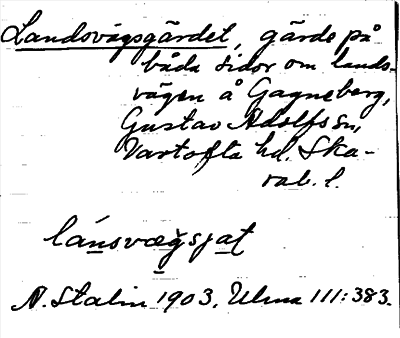 Landsvägsgärdet, gärde på
båda sidor om lands-
vägen å Gagneberg,
Gustav Adolfs sn,
Vartofta hd. Ska-
rab. l.
lánsvæǧsjat
N. Stalin 1903. Ulma 111:383.